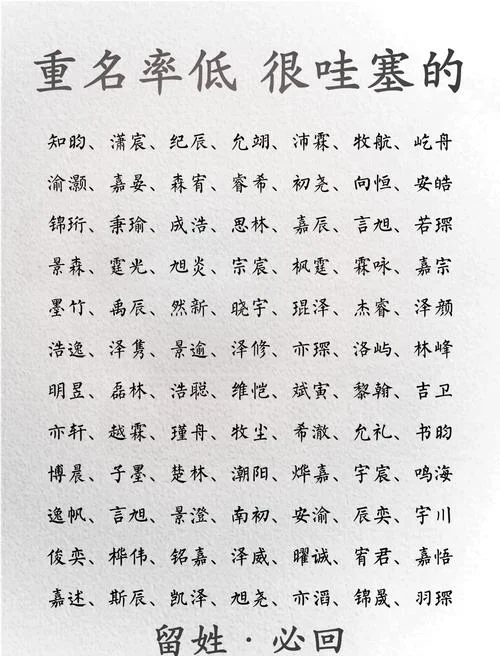 重名率低 很哇塞的
知昀、潇宸、纪辰、允翊、沛霖、牧航、屹舟
渝灏、嘉晏、森宥、睿希、初尧、向恒、安皓
锦珩、秉瑜、成浩、思林、嘉辰、言旭、若琛
景森、霆光、旭炎、宗宸、枫霆、霖咏、嘉宗
墨竹、禹辰、然新、晓宇、琨泽、杰睿、泽颜
浩逸、泽隽、景逾、泽修、亦琛、洛屿、林峰
明昱、磊林、浩聪、维恺、斌寅、黎翰、吉卫
亦轩、越霖、瑾舟、牧尘、希澈、允礼、书昀
博晨、子墨、楚林、潮阳、烨嘉、宇宸、鸣海
逸帆、言旭、景澄、南初、安渝、辰奕、宇川
俊奕、桦伟、铭嘉、泽威、曜诚、宥君、嘉悟
嘉述、斯辰、凯泽、旭尧、亦滔、锦晟、羽琛
留姓·必回